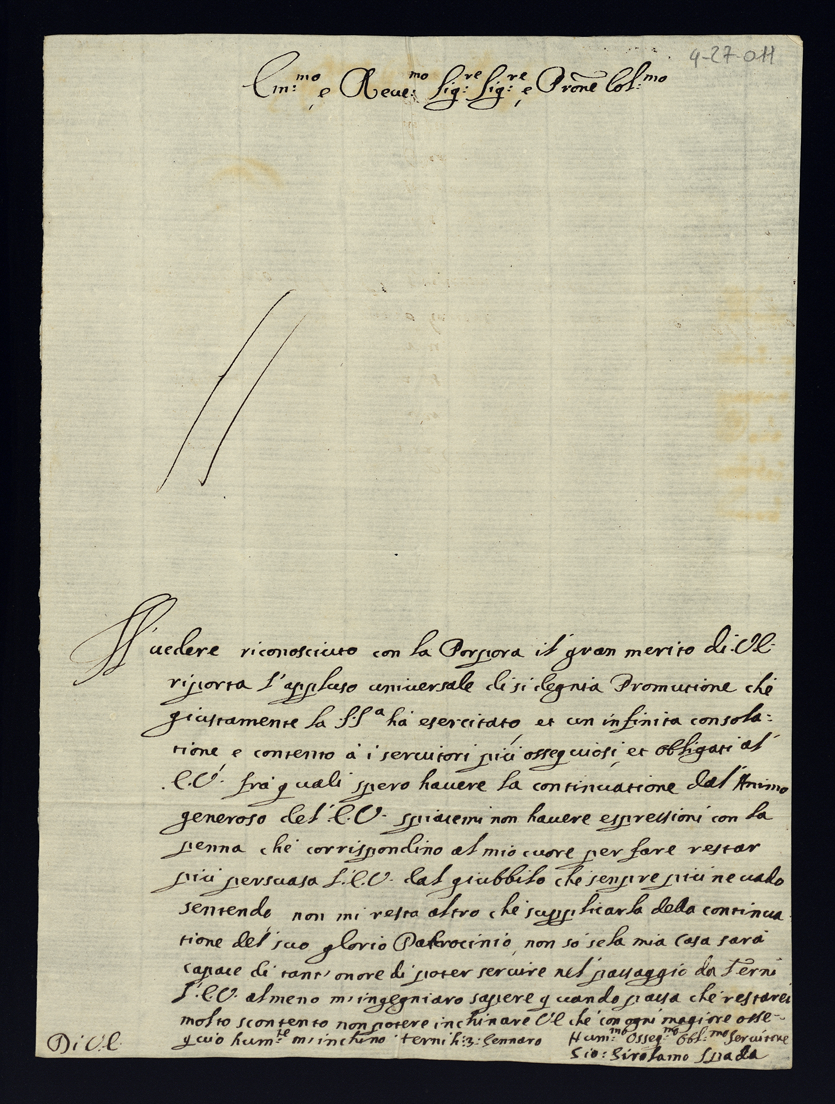 4-27-011
Em:mo e Reue:mo Sig:re Sig:re e Prone Col:mo
Il uedere riconosciuto con la Porpora il gran merito di V.E:
riporta l'appluso uniuersale di si degnia Promutione che
giustamente la S.S.a ha esercitato, et un infinita consola:
tione, e contento à i seruitori più osseguiosi, et obbligati al
E.V. fra quali spero hauere la continuatione dal'Animo
generoso del'E.V. spiacemi non hauere espressioni con la
penna che corrispondino al mio cuore per fare restar
più persuasa l'E.V. dal giubbilo che senpre più ne uado
sentendo non mi resta altro che supplicarla della continua
tione del suo glorio Patrocinio, non so se la mia Casa sarà
capace di tant'onore di poter seruire nel passaggio da Terni
l'E.V. almeno m'ingegniaro sapere quando passa che restarei
molto scontento non potere inchinare VE che con ogni magiore osse-
quio hum:te m'inchino Terni li :3: Gennaro
Di V.E. Hum:mo Osseq:mo Obl:mo Seruitore
Gio: Girolamo Spada